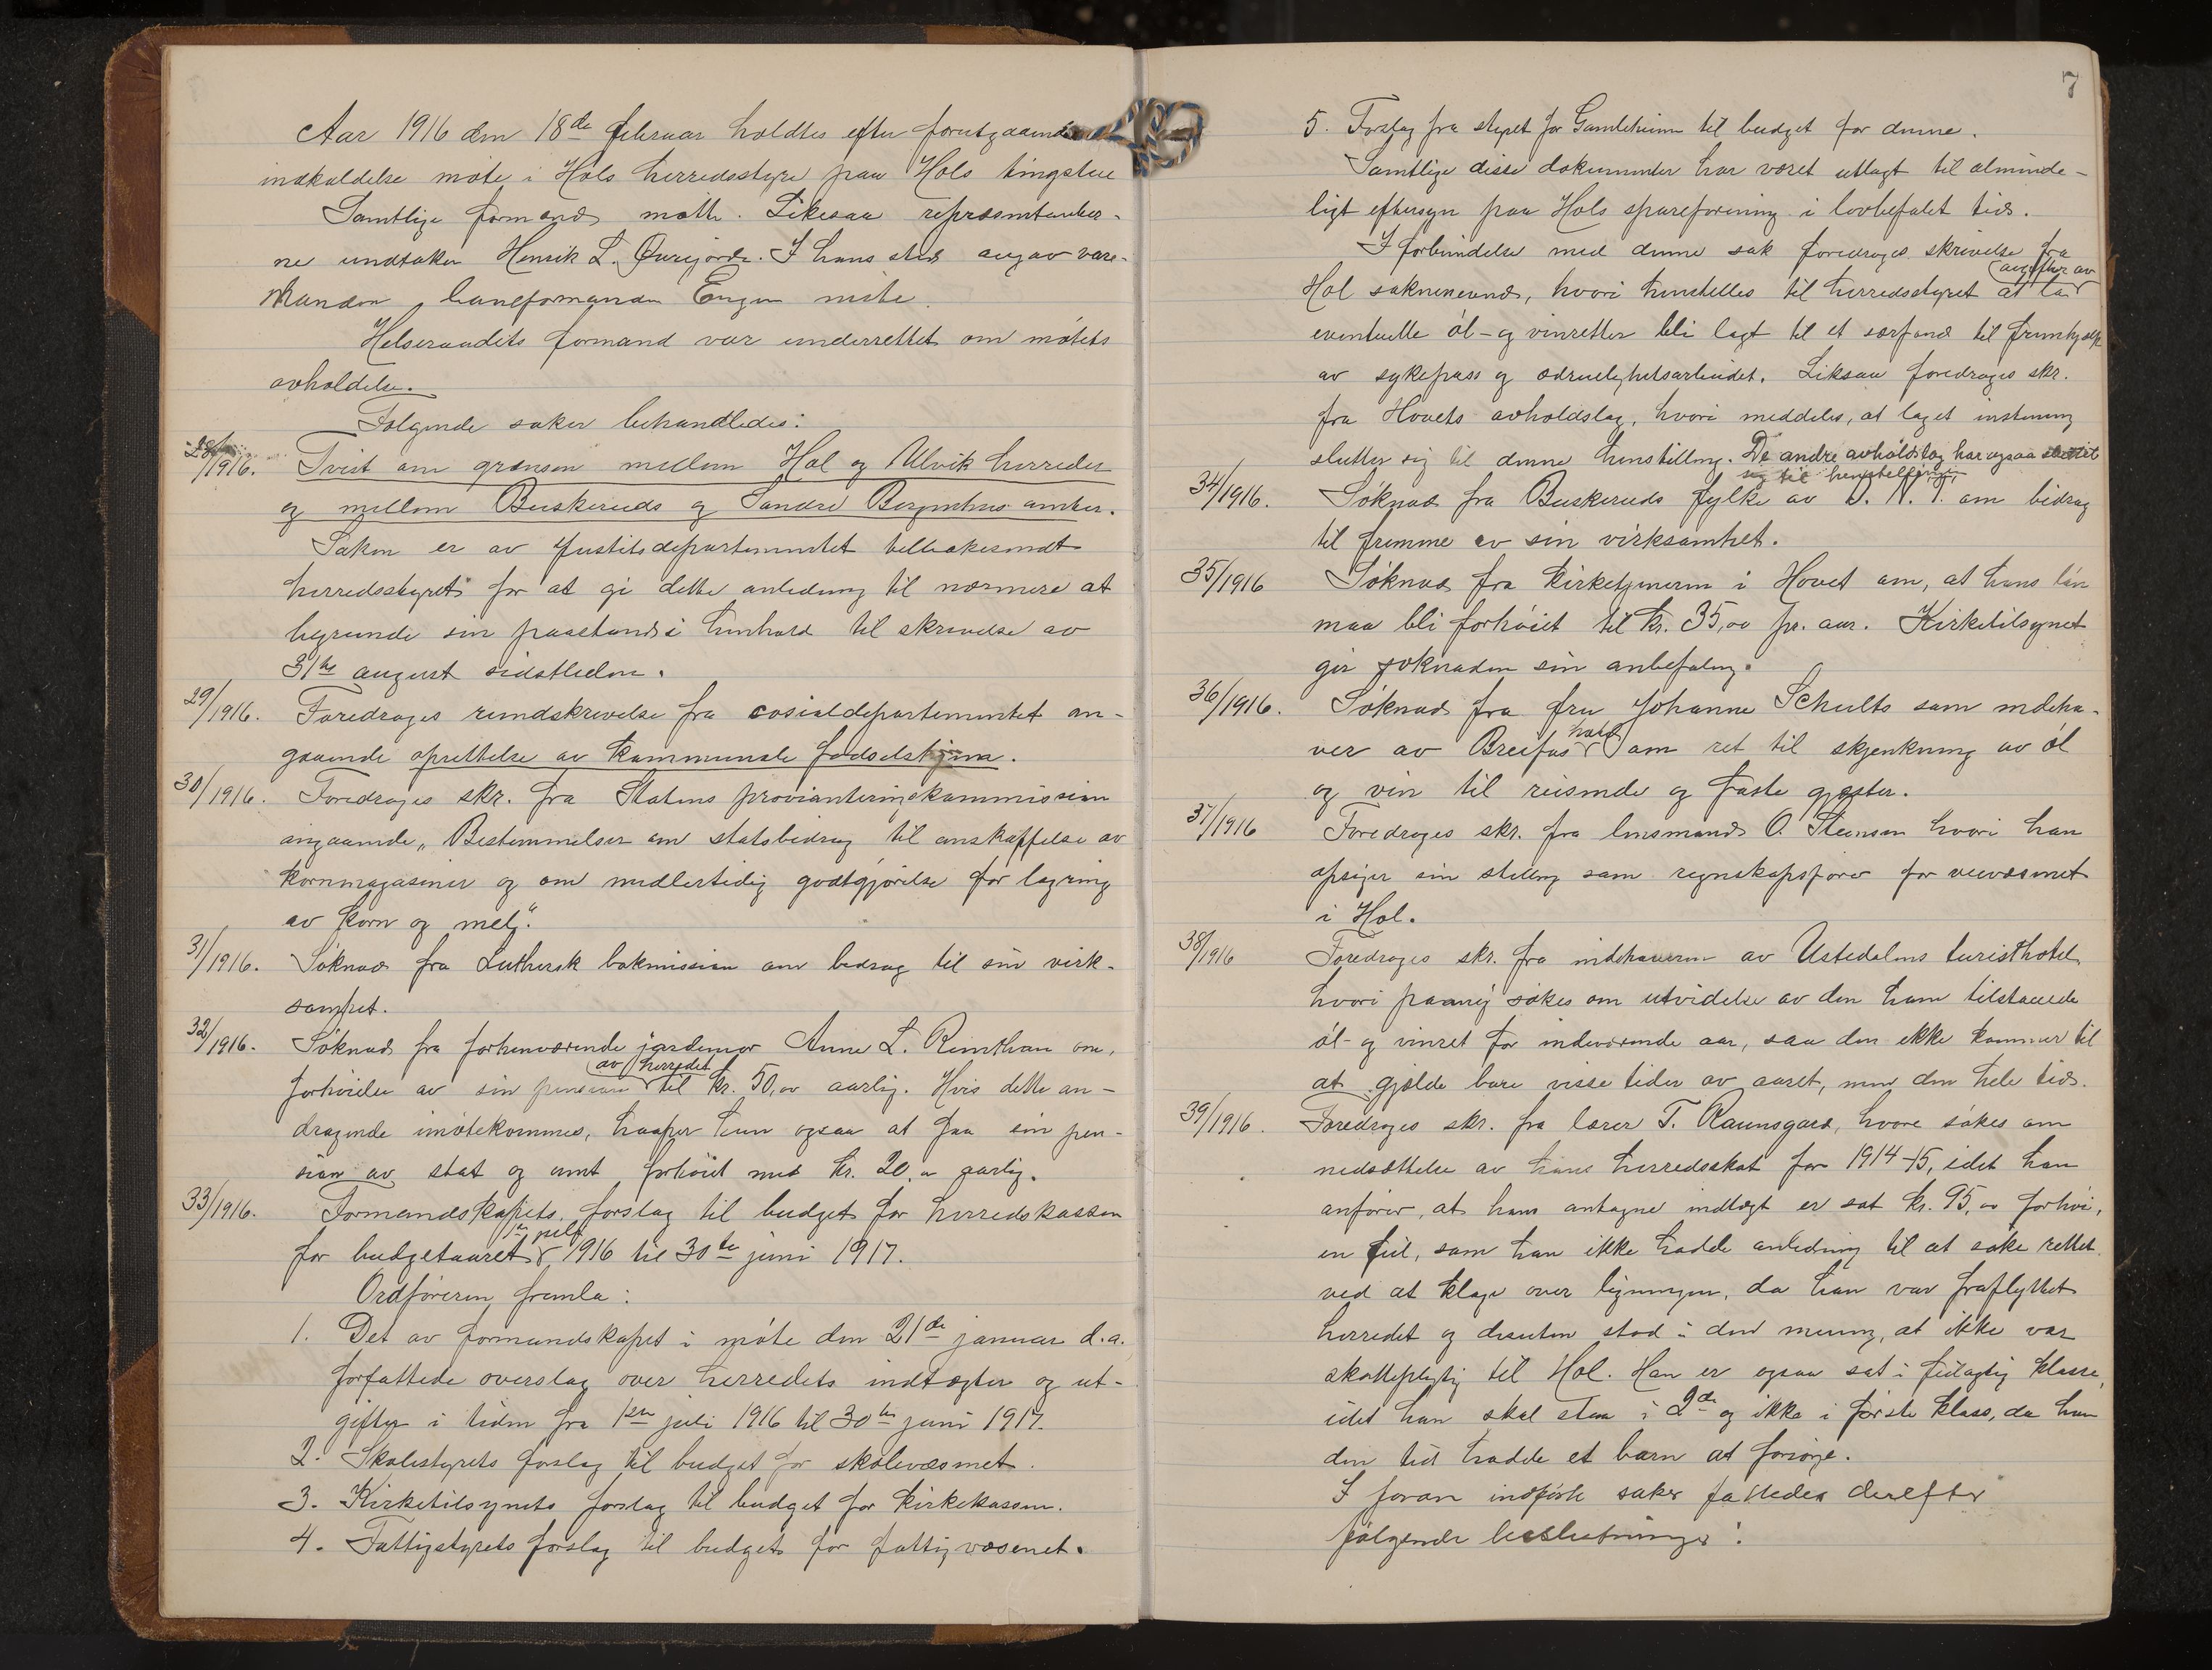 Aar 1916 den 18de februar holdtes efter forutgaaende
indkaldelse møte i Hols herredsstyre paa Hols tingstue
Samtlige formænd møtte. Likesaa repræsentanter-
ne undtaken Henrik L. I hans sted avgav vara-
manden, baneformanden Engen møte.
Helseraadets formand var underrettet om møtets
avholdelse.
Følgende saker behandledes:
28/1916. Tvist om grænsen mellem Hol og Ulvik herreder
og mellem Buskeruds og Søndre Bergenhus amter.
Saken er av Justitsdepartementet tilbakesendt
herredsstyret for at gi dette anledning til nærmere at
begrunde sin paastand i henhold til skrivelse av
31te august sidstleden.
29/1916. Foredroges rundskrivelse fra socialdepartementet an-
gaaende oprettelse av kommunale fødselshjem.
30/1916. Foredroges skr. fra Statens provianteringskommission
angaaende „Bestemmelser om statsbidrag til anskaffelse av
kornmagasiner og om midlertidig godtgjørelse for lagring
av korn og mel“.
31/1916. Søknad fra Luthersk bokmission om bidrag til sin virk-
somhet.
32/1916. Søknad fra forhenværende jordemor Anne L. om,
av herredet
forhøielse av sin pension til kr. 50,00 aarlig. Hvis dette an-
dragende imøtekommes, haaper hun ogsaa at faa sin pen-
sion av stat og amt forhøiet med kr. 20,00 aarlig.
33/1916. Formandskapets forslag til budget for herredskassen
1ste juli
for budgetaaret 1916 til 30te juni 1917.
Ordføreren fremla:
1. Det av formandskapet i møte den 21de januar d.a.
forfattede overslag over herredets indtægter og ut-
gifter i tiden fra 1ste juli 1916 til 30te juni 1917.
2. Skolestyrets forslag til budget for skolevæsenet.
3. Kirketilsynets forslag til budget for kirkekassen.
4. Fattigstyrets forslag til budget for fattigvæsenet.
7
5. Forslag fra styret for Gamleheimen til budget for denne.
Samtlige disse dokumenter har været utlagt til alminde-
ligt eftersyn paa Hols spareforening i lovbefalet tid.
I forbindelse med denne sak foredroges skrivelse fra
avgifter av
Hol soknenevnd, hvori henstilles til herredsstyret at la
eventuelle øl- og vinretter bli lagt til et særfond til fremhjælp
av sykepass og ædruelighetsarbeidet. Likesaa foredroges skr.
fra Hovets avholdslag, hvori meddeles, at laget enstemmig
slutter sig til denne henstilling. De andre avholdslag har ogsaa sluttet
sig til henstillingen.
34/1916. Søknad fra Buskeruds fylke av D. N. T. om bidrag
til fremme av sin virksomhet.
35/1916 Søknad fra kirketjeneren i Hovet om, at hans løn
maa bli forhøiet til kr. 35,00 pr. aar. Kirketilsynet
gir søknaden sin anbefaling.
36/1916. Søknad fra fru Johanne Schults som indeha-
ver av Breifos om ret til skjenkning av øl
og vin til reisende og faste gjæster.
37/1916 Foredroges skr. fra lensmand O. Steensen hvori han
opsiger sin stilling som regnskapsfører for veivæsenet
i Hol.
38/1916 Foredroges skr. fra indehaveren av Ustedalens turisthotel,
hvori paany søkes om utvidelse av den ham tilstaaede
øl- og vinret for indeværende aar, saa den ikke kommer til
at gjælde bare visse tider av aaret, men den hele tid.
39/1916. Foredroges skr. fra lærer T. Raunsgard, hvori søkes om
nedsættelse av hans herredsskat for 1914-15, idet han
anfører, at hans antagne indtægt er sat kr. 95,00 for høi,
en feil, som han ikke hadde anledning til at søke rettet
ved at klage over ligningen, da han var fraflyttet
herredet og desuten stod i den mening, at ikke var
skattepligtig til Hol. Han er ogsaa sat i feilagtig klasse,
idet han skal staa i 2den og ikke i første klasse, da han
den tid hadde et barn at forsørge.
I foran indførte saker fattedes derefter
følgende beslutninger: